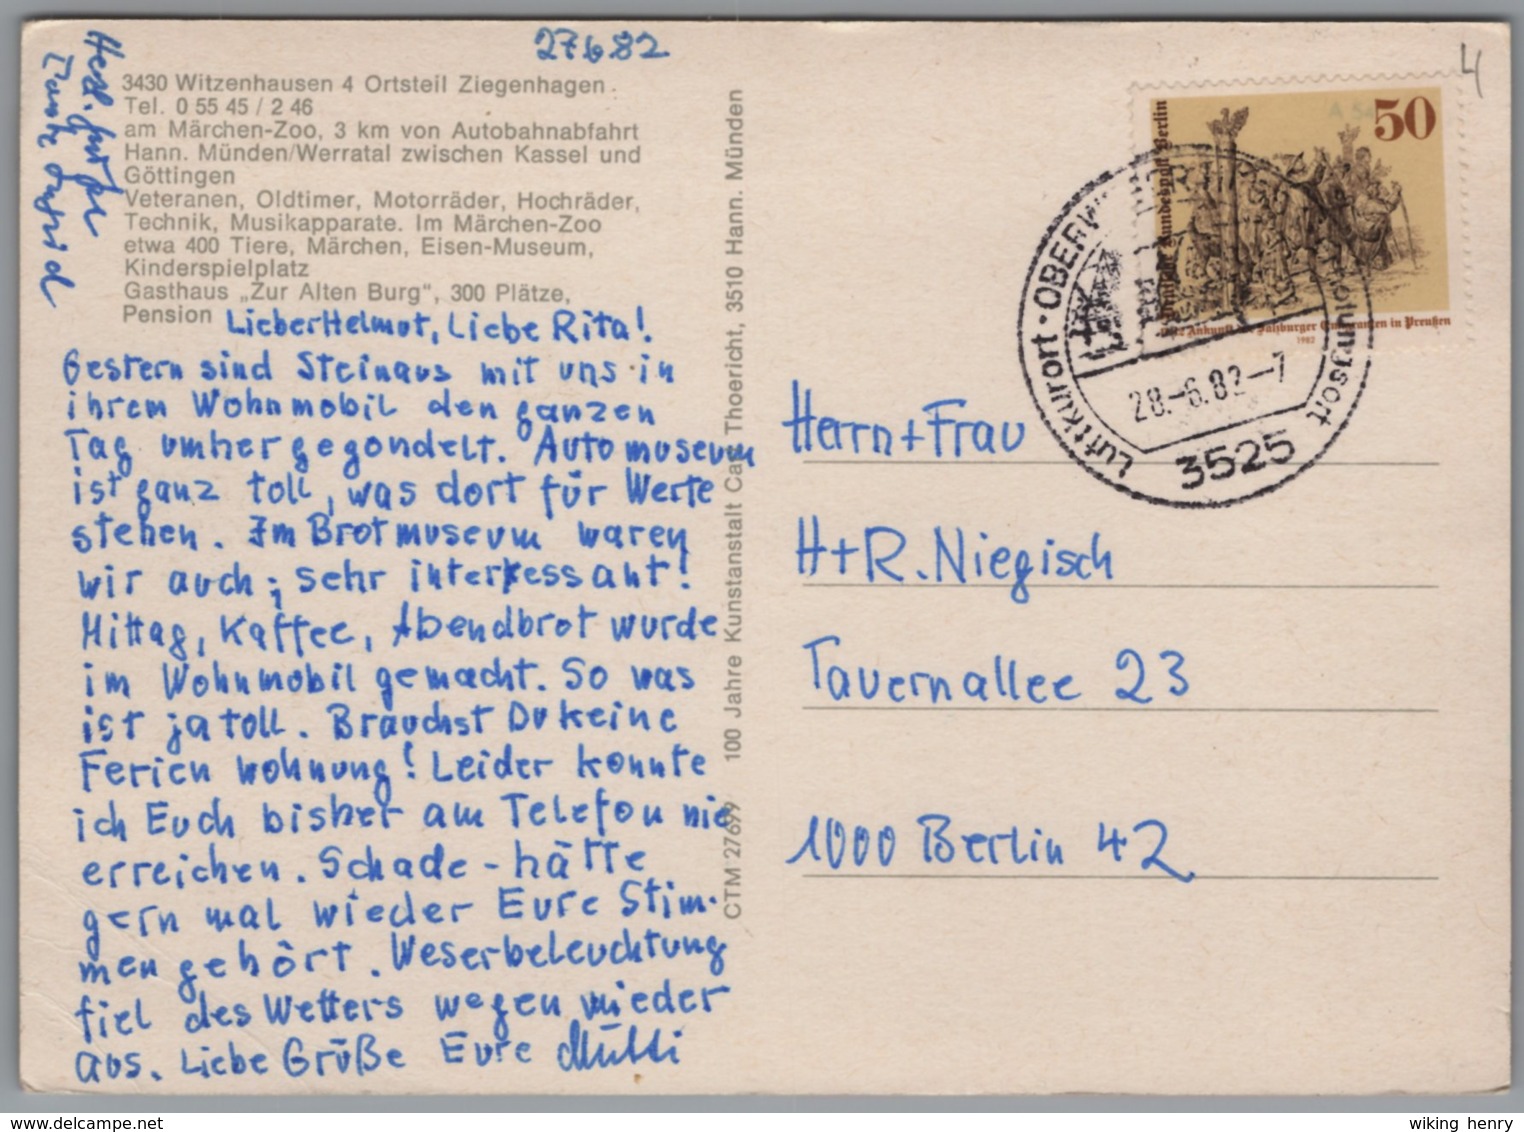 27.6.82
4
3430 Witzenhausen 4 Ortsteil Ziegenhagen
Tel. 0 55 45 / 2 46
am Märchen-Zoo, 3 km von Autobahnabfahrt
Hann. Münden/Werratal zwischen Kassel und
Göttingen
Veteranen, Oldtimer, Motorräder, Hochräder,
Technik, Musikapparate. Im Märchen-Zoo
etwa 400 Tiere, Märchen, Eisen-Museum,
Kinderspielplatz
Gasthaus „Zur Alten Burg“, 300 Plätze,
Pension
Lieber Helmut, Liebe Rita!
Gestern sind Steinaus mit uns in
ihrem Wohnmobil den ganzen
Tag umhergegondelt. Automuseum
ist ganz toll, was dort für Werte
stehen. Im Brotmuseum waren
wir auch; sehr interessant!
Mittag, Kaffee, Abendbrot wurde
im Wohnmobil gemacht. So was
ist ja toll. Brauchst Du keine
Ferienwohnung! Leider konnte
ich Euch bisher am Telefon nie
erreichen. Schade - hätte
gern mal wieder Eure Stim-
men gehört. Weserbeleuchtung
fiel des Wetters wegen wieder
aus. Liebe Grüße Eure Mutti
Herzl.
Tante Astrid
CTM 27699 100 Jahre Kunstanstalt Carl Thoericht, 3510 Hann. Münden
50
Deutsche Bundespost Berlin
1732 Ankunft der Salzburger Emigranten in Preußen
1982
Luftkurort · OBERW
28.-6.82--7
3525
Herrn + Frau
H+R. Niegisch
Tauernallee 23
1000 Berlin 42
wiking henry